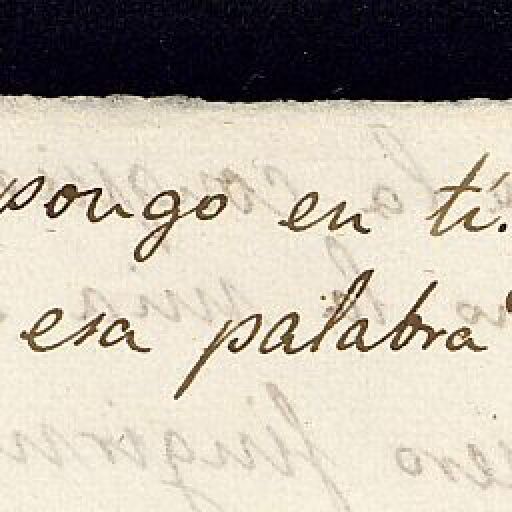 pongo en tí.
esa palabra